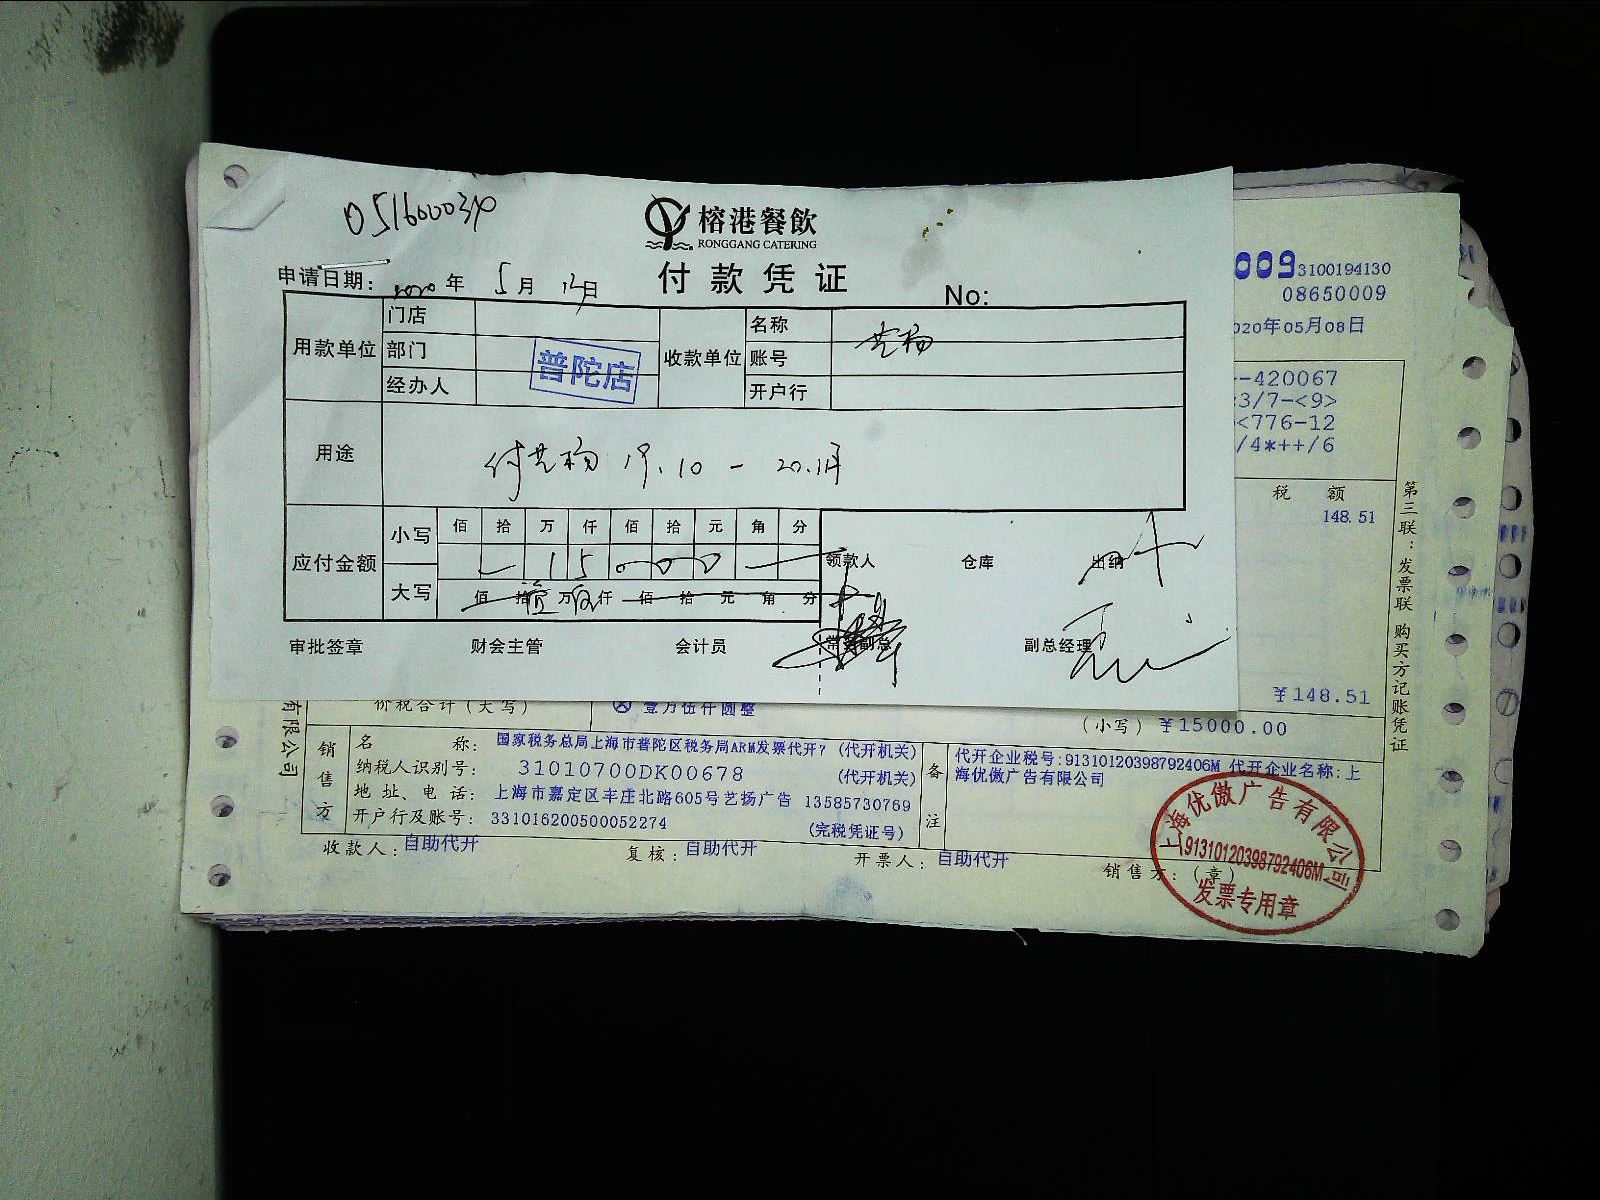 榕港餐飲
RONGGANG CATERING
付款凭证
申请日期: 2020 年 5 月 12 日 No:
用款单位 门店 收款单位 名称 艺杨
部门 普陀店 账号
经办人 开户行
用途 付艺杨 19.10 - 20.1月
应付金额 小写 佰 拾 万 仟 佰 拾 元 角 分
1 5 0 0 0
大写 佰 拾 壹 万 伍 仟 佰 拾 元 角 分
领款人 仓库 出纳
审批签章 财会主管 会计员 常务副总 副总经理
009 3100194130
08650009
020年05月08日
-420067
3/7-<9>
<776-12
/4*++/6
税 额
148.51
¥148.51
第三联:发票联 购买方记账凭证
有限公司
价税合计(大写) ⊗ 壹万伍仟圆整 (小写) ¥15000.00
销售方
名 称: 国家税务总局上海市普陀区税务局ARM发票代开7 (代开机关)
纳税人识别号: 31010700DK00678 (代开机关)
地 址、电 话: 上海市嘉定区丰庄北路605号艺扬广告 13585730769
开户行及账号: 331016200500052274 (完税凭证号)
备注
代开企业税号:91310120398792406M 代开企业名称:上
海优傲广告有限公司
收款人: 自助代开 复核: 自助代开 开票人: 自助代开 销售方: (章)
上海优傲广告有限公司
91310120398792406M
发票专用章